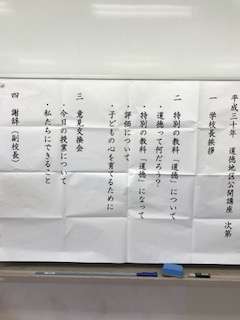 平成三十年　道徳地区公開講座　次第
一　学校長挨拶
二　特別の教科「道徳」について
・道徳って何だろう？
・特別の教科「道徳」になって
・評価について
・子どもの心を育てるために
三　意見交換会
・今日の授業について
・私たちにできること
四　謝辞（副校長）